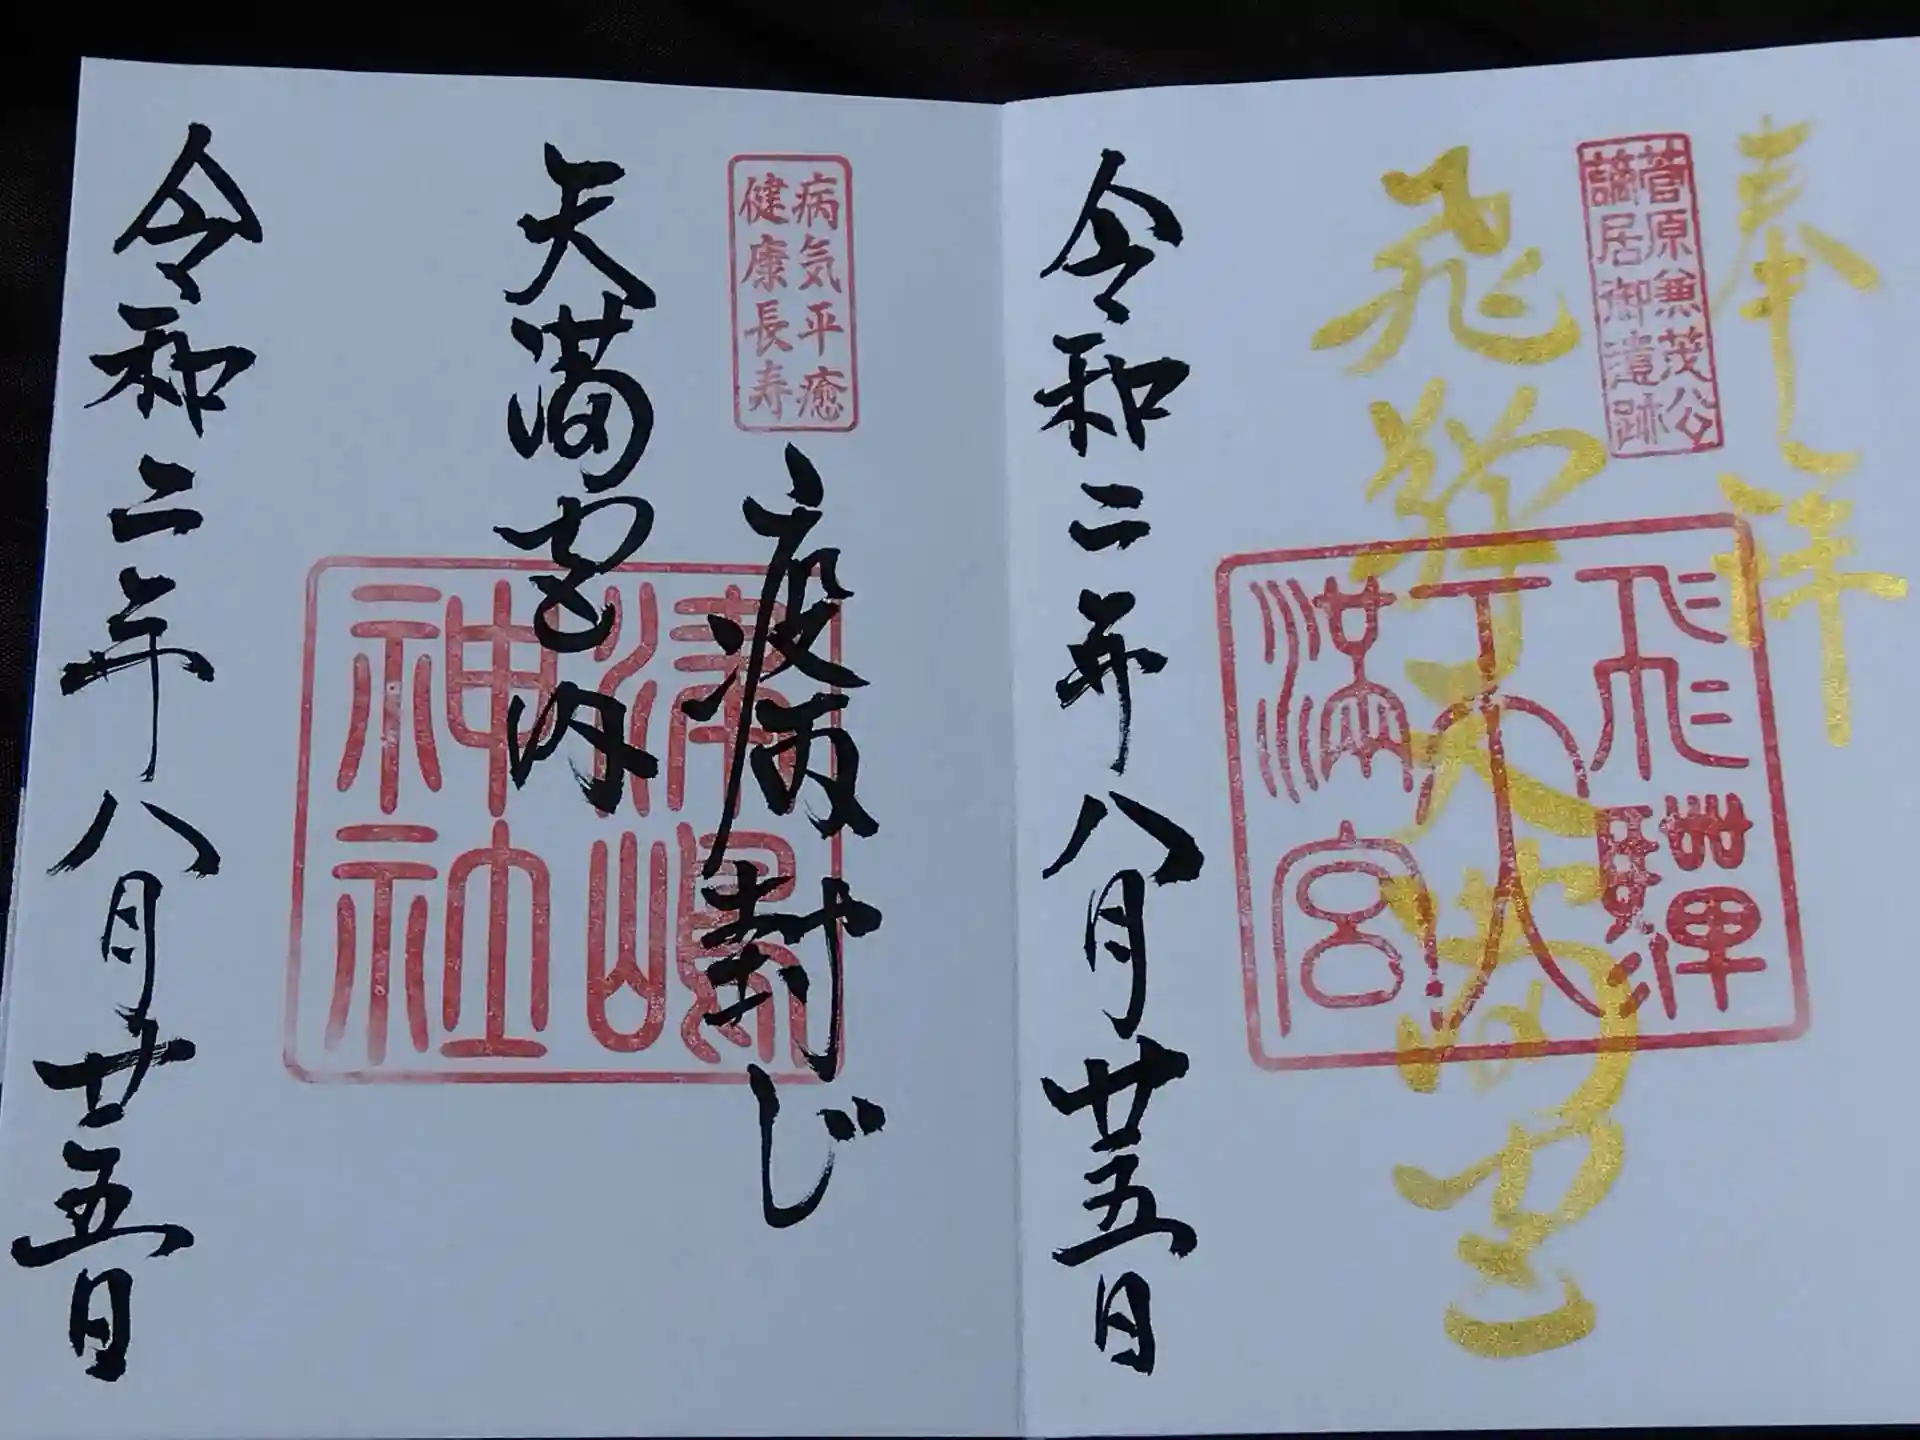 奉拝
菅原兼茂公
謫居御遺跡
飛騨天満宮
飛騨
天
満宮
令和二年八月廿五日
病気平癒
健康長寿
疫病封じ
天満宮内
津嶋
神社
令和二年八月廿五日